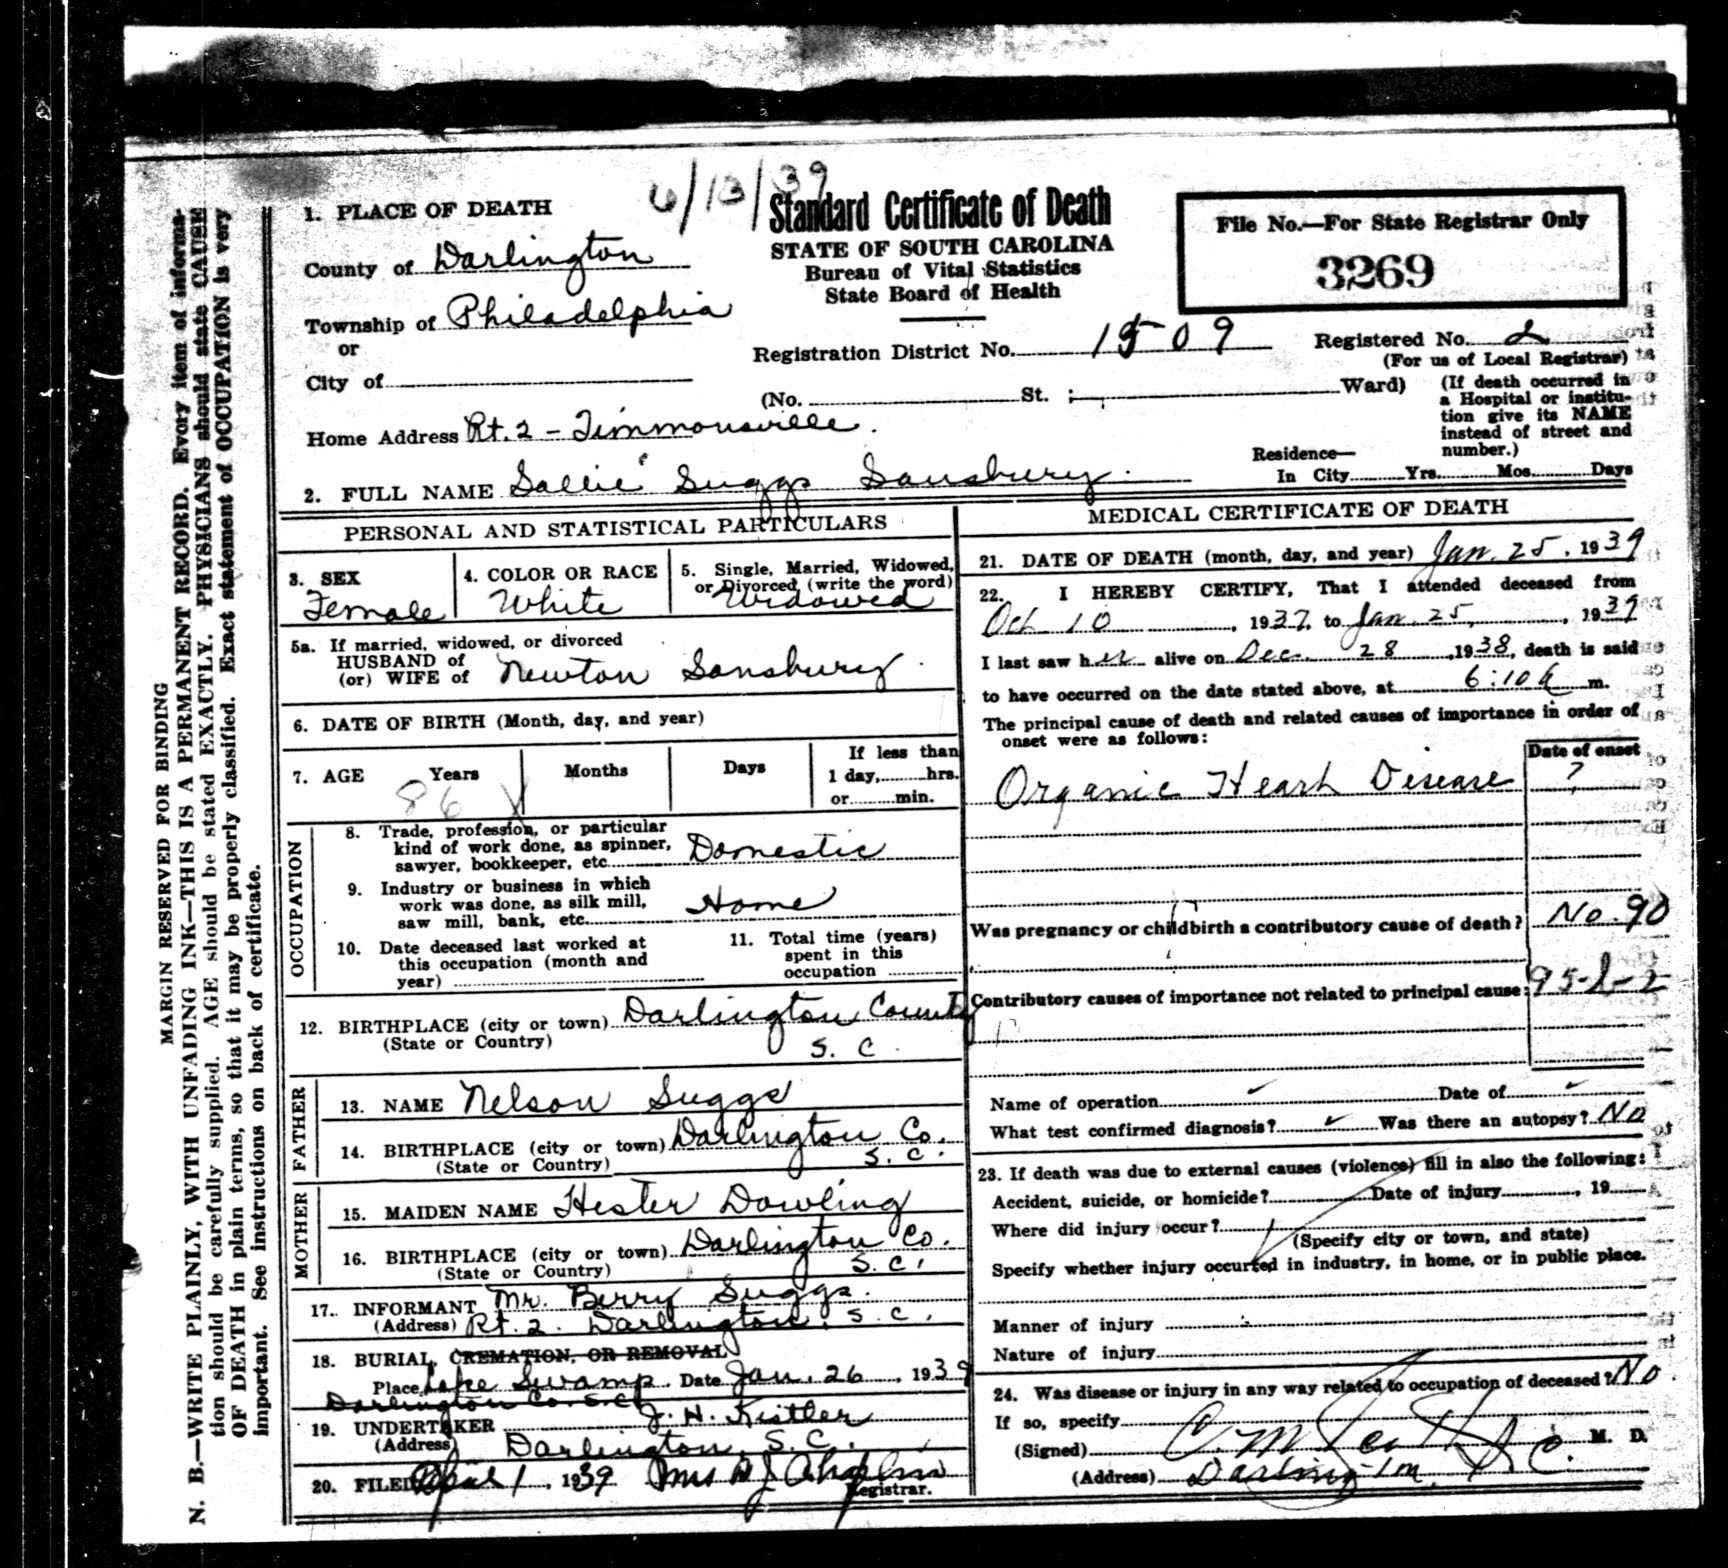 6/13/39
Standard Certificate of Death
STATE OF SOUTH CAROLINA
Bureau of Vital Statistics
State Board of Health
File No.—For State Registrar Only
3269
1. PLACE OF DEATH
County of Darlington
Township of Philadelphia
or
City of
Registration District No. 1509
Registered No. 2
(For us of Local Registrar)
(No. St. ; Ward)
(If death occurred in
a Hospital or institu-
tion give its NAME
instead of street and
number.)
Home Address Rt. 2 - Timmonsville.
Residence—
In City Yrs. Mos. Days
2. FULL NAME Sallie Suggs Sansbury.
PERSONAL AND STATISTICAL PARTICULARS
3. SEX
Female
4. COLOR OR RACE
White
5. Single, Married, Widowed,
or Divorced (write the word)
Widowed
5a. If married, widowed, or divorced
HUSBAND of
(or) WIFE of Newton Sansbury.
6. DATE OF BIRTH (Month, day, and year)
7. AGE Years Months Days If less than
1 day, hrs.
or min.
86
OCCUPATION
8. Trade, profession, or particular
kind of work done, as spinner,
sawyer, bookkeeper, etc. Domestic
9. Industry or business in which
work was done, as silk mill,
saw mill, bank, etc. Home
10. Date deceased last worked at
this occupation (month and
year)
11. Total time (years)
spent in this
occupation
12. BIRTHPLACE (city or town) Darlington County
(State or Country) S. C.
FATHER
13. NAME Nelson Suggs
14. BIRTHPLACE (city or town) Darlington Co.
(State or Country) S. C.
MOTHER
15. MAIDEN NAME Hester Dowling
16. BIRTHPLACE (city or town) Darlington Co.
(State or Country) S. C.
17. INFORMANT Mr. Berry Suggs.
(Address) Rt. 2. Darlington, S. C.
18. BURIAL, CREMATION, OR REMOVAL
Place Lake Swamp. Date Jan. 26, 1939
Darlington Co. S.C.
19. UNDERTAKER J. H. Kistler
(Address) Darlington, S. C.
20. FILED April 1, 1939 Mrs
Registrar.
MEDICAL CERTIFICATE OF DEATH
21. DATE OF DEATH (month, day, and year) Jan. 25, 1939
22. I HEREBY CERTIFY, That I attended deceased from
Oct 10, 1937, to Jan. 25, 1939
I last saw her alive on Dec. 28, 1938, death is said
to have occurred on the date stated above, at 6:10 a m.
The principal cause of death and related causes of importance in order of
onset were as follows:
Date of onset
Organic Heart Disease ?
Was pregnancy or childbirth a contributory cause of death? No. 90
Contributory causes of importance not related to principal cause:
Name of operation Date of
What test confirmed diagnosis? Was there an autopsy? No
23. If death was due to external causes (violence) fill in also the following:
Accident, suicide, or homicide? Date of injury , 19
Where did injury occur?
(Specify city or town, and state)
Specify whether injury occurred in industry, in home, or in public place.
Manner of injury
Nature of injury
24. Was disease or injury in any way related to occupation of deceased? No.
If so, specify
(Signed) M. D.
(Address) Darlington, S. C.
MARGIN RESERVED FOR BINDING
N. B.—WRITE PLAINLY, WITH UNFADING INK—THIS IS A PERMANENT RECORD. Every item of informa-
tion should be carefully supplied. AGE should be stated EXACTLY. PHYSICIANS should state CAUSE
OF DEATH in plain terms, so that it may be properly classified. Exact statement of OCCUPATION is very
important. See instructions on back of certificate.